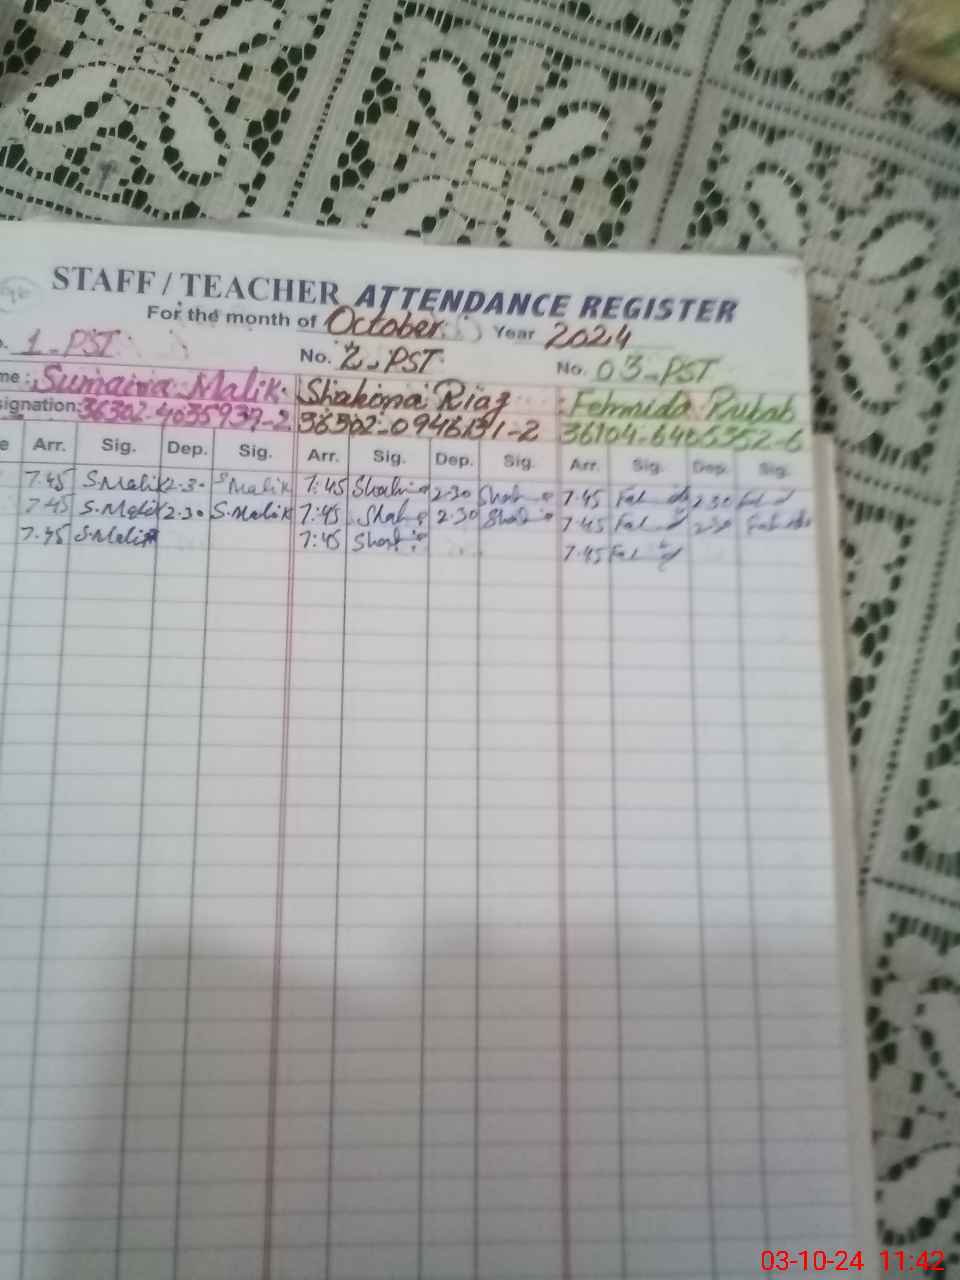 STAFF / TEACHER ATTENDANCE REGISTER
For the month of October Year 2024
1-PST No. 2-PST No. 03-PST
me: Sumaira Malik Shakona Riaz Fehmida Rubab
signation: 36302-4035937-2 36302-0946131-2 36104-6405352-6
e Arr. Sig. Dep. Sig. Arr. Sig. Dep. Sig. Arr. Sig. Dep. Sig.
7.45 S.Malik 2.30 S.Malik 7:45 2:30 7.45 2.30
7.45 S.Malik 2.30 S.Malik 7:45 2:30 7.45 2.30
7.45 S.Malik 7:45 7.45
03-10-24 11:42